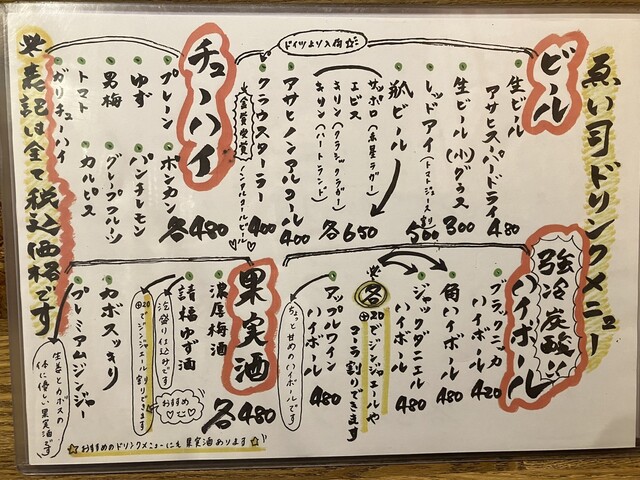 ゑい司ドリンクメニュー
ビール
生ビール
アサヒスーパードライ 480
生ビール(小)グラス 300
レッドアイ(トマトジュース割) 500
瓶ビール
サッポロ(赤星ラガー)
エビス
キリン(クラシックラガー)
キリン(ハートランド)
各650
アサヒノンアルコール 400
ドイツより入荷☆
クラウスターラー 400
☆金賞受賞
ノンアルコールビール
チューハイ
プレーン
ゆず
男梅
トマト
ガリチューハイ
ポンカン
パンチレモン
グレープフルーツ
カルピス
各480
※表記は全て税込価格です
強冷炭酸!!
ハイボール
ブラックニッカ
ハイボール 420
角ハイボール 480
ジャックダニエル
ハイボール 480
※各⊕20でジンジャエールや
コーラ割りできます
アップルワイン
ハイボール 480
ちょっと甘めのハイボールです
果実酒
濃厚梅酒
請福ゆず酒
各480
おすすめ
⊕20でジンジャエール割りできます
カボスッキリ
プレミアムジンジャー
生姜とカボスの
体に優しい果実酒です
☆おすすめのドリンクメニューにも果実酒あります☆